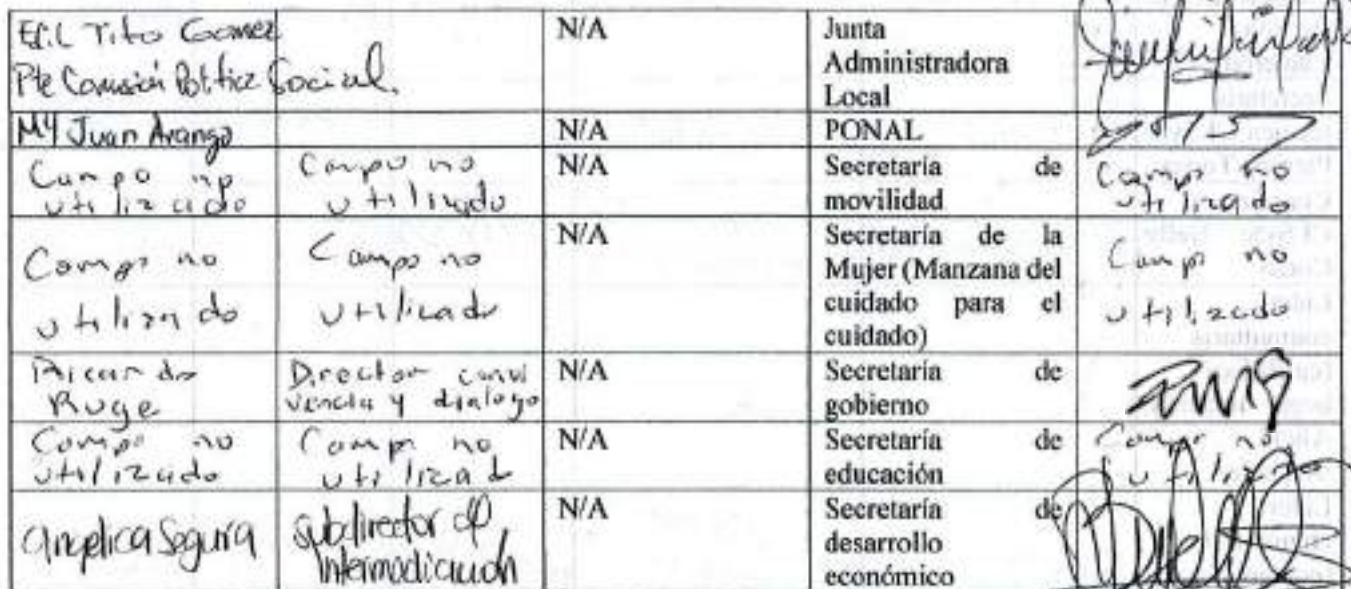 Ef.L Tito Gomez
Pte Comisión Política Social.
N/A
Junta
Administradora
Local
MY Juan Arango
N/A
PONAL
Campo no
utilizado
Campo no
utilizado
N/A
Secretaría de
movilidad
Campo no
utilizado
Campo no
utilizado
Campo no
utilizado
N/A
Secretaría de la
Mujer (Manzana del
cuidado para el
cuidado)
Campo no
utilizado
Ricardo
Ruge
Director convi
vencia y dialogo
N/A
Secretaría de
gobierno
Campo no
utilizado
Campo no
utilizado
N/A
Secretaría de
educación
Campo no
utilizado
Angelica Segura
Subdirector de
Intermediación
N/A
Secretaría de
desarrollo
económico